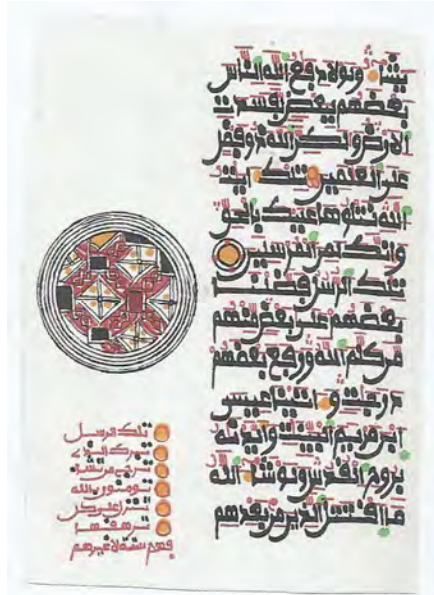 يشاء ولولا دفع الله الناس
بعضهم ببعض لفسدت
الارض ولكن الله ذو فضل
على العلمين تلك ايت
الله نتلوها عليك بالحق
وانك لمن المرسلين
تلك الرسل فضلنا
بعضهم على بعض منهم
من كلم الله ورفع بعضهم
درجت و اتينا عيسى
ابن مريم البينت وايدنه
بروح القدس ولو شاء الله
ما اقتتل الذين من بعدهم
تلك الرسل
تومنون بالله
فهم ستة لا غيرهم